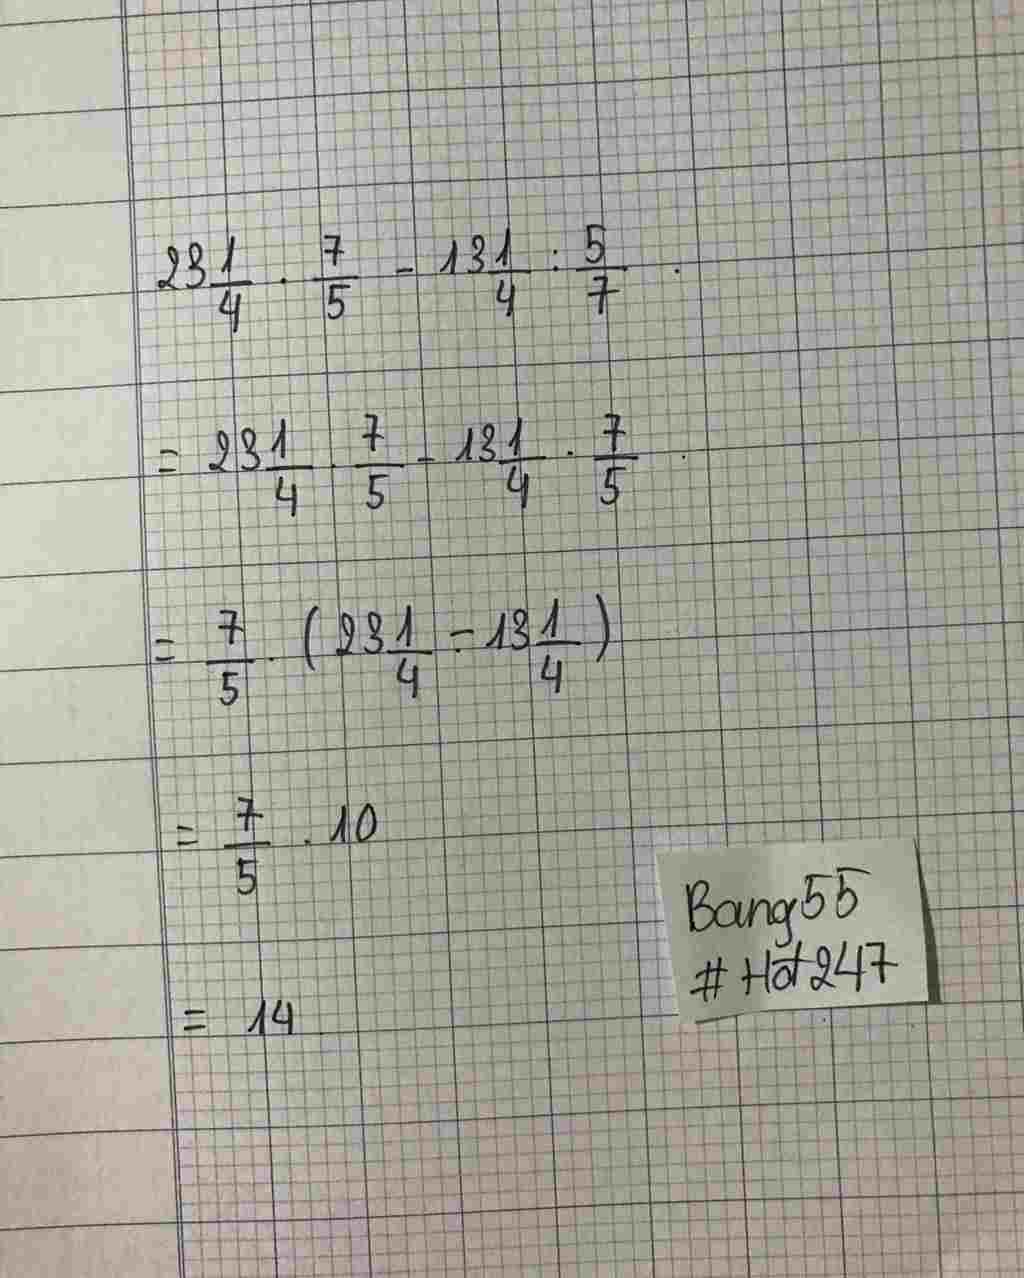 23 1/4 . 7/5 - 13 1/4 : 5/7 .
= 23 1/4 . 7/5 - 13 1/4 . 7/5 .
= 7/5 . ( 23 1/4 - 13 1/4 )
= 7/5 . 10
= 14
Bang55
# Hot247